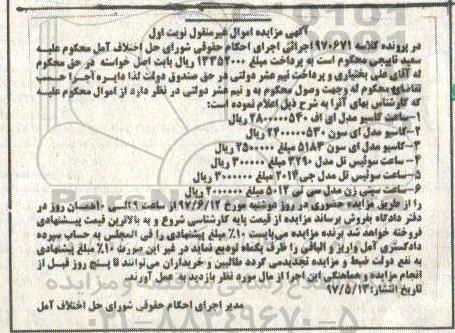 آگهی مزایده اموال غیرمنقول نوبت اول
در پرونده کلاسه ۹۷۰۶۷۱اجرائی اجرای احکام حقوقی شورای حل اختلاف آمل محکوم علیه
سعید تایبجی محکوم است به پرداخت مبلغ ۱۳۳۵۳۰۰۰ ریال بابت اصل خواسته در حق محکوم
له آقای علی بختیاری و پرداخت نیم عشر دولتی در حق صندوق دولت لذا دایره اجرا حسب
تقاضای محکوم له وجهت وصول محکوم به و نیم عشر دولتی در نظر دارد از اموال محکوم علیه
که کارشناس بهای آنرا به شرح ذیل اعلام نموده است:
۱-ساعت کاسیو مدل ای اف ۵۴۰-۲۸۰۰۰۰۰ ریال
۲-کاسیو مدل ای سون ۵۳۰-۲۴۰۰۰۰۰ ریال
۳-کاسیو مدل ای سون ۵۱۸۳ مبلغ ۲۵۰۰۰۰۰ ریال
۴-ساعت سوئیس تل مدل ۳۲۹۰ مبلغ ۳۰۰۰۰۰۰ ریال
۵-ساعت سوئیس تل مدل جی ۲۰۱۴ مبلغ ۳۰۰۰۰۰۰ ریال
۶-ساعت سیتی زن مدل سی تی ۵۰۱۴ مبلغ ۲۰۰۰۰۰۰ ریال
را از طریق مزایده حضوری در روز دوشنبه مورخ ۹۷/۶/۱۲ از ساعت ۹الی ۱۰همان روز در
دفتر دادگاه بفروش برساند مزایده از قیمت پایه کارشناسی شروع و به بالاترین قیمت پیشنهادی
فروخته خواهد شد برنده مزایده می‌بایست ۱۰٪ مبلغ پیشنهادی را فی المجلس به حساب سپرده
دادگستری آمل واریز و الباقی را ظرف یکماه تودیع نماید در غیر این صورت ۱۰٪ مبلغ پیشنهادی
به نفع دولت ضبط و مزایده تجدیدمی گردد طالبین و خریداران می‌توانند تا پنج روز قبل از
انجام مزایده و هماهنگی این اجرا از مال مورد نظر بازدید به عمل آورند.
تاریخ انتشار:۹۷/۵/۱۳
مدیر اجرای احکام حقوقی شورای حل اختلاف آمل
۰۲۱-۸۸۳۴۹۶۷۰-۵